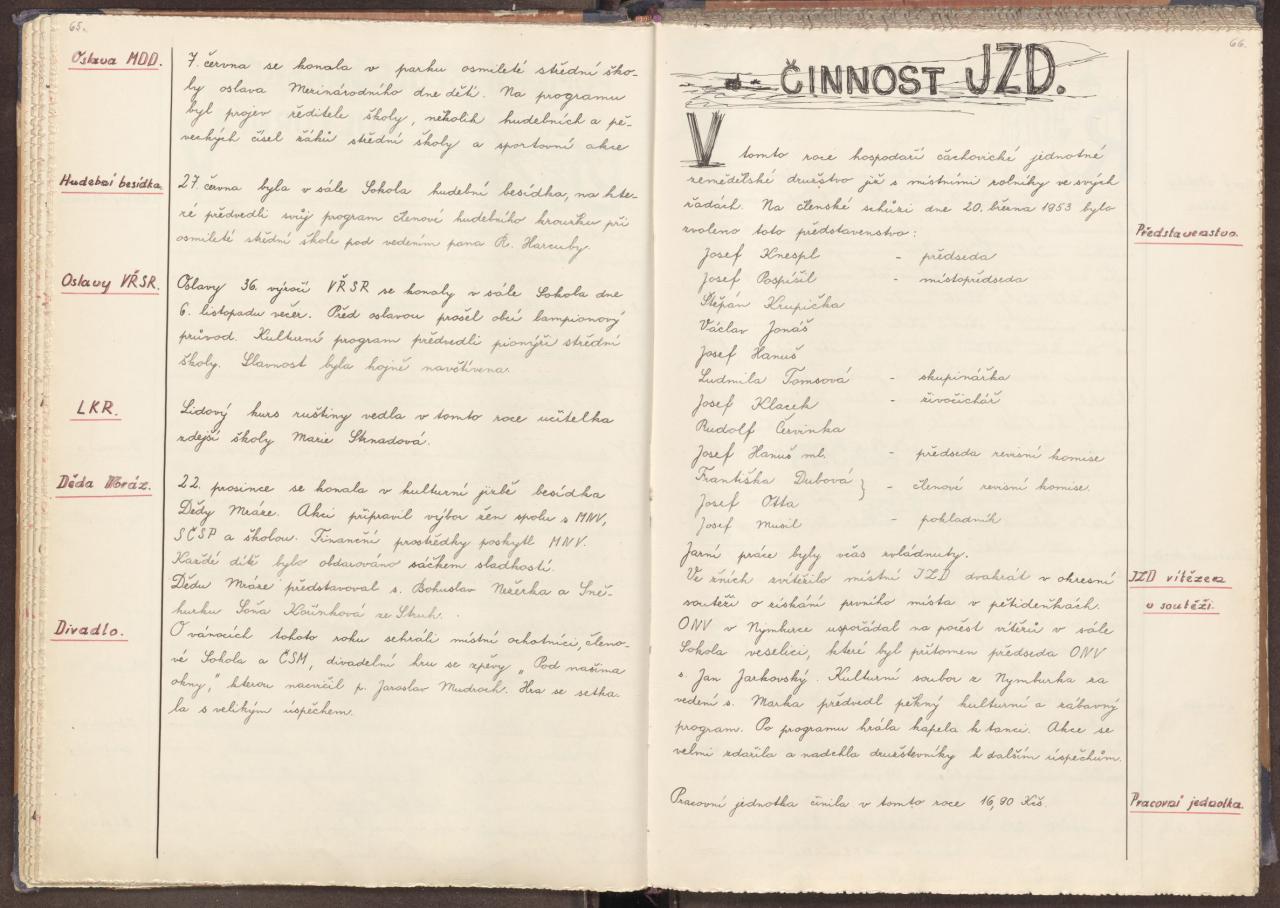 65.
Oslava MDD.
7. června se konala v parku osmileté střední ško-
ly oslava Mezinárodního dne dětí. Na programu
byl projev ředitele školy, několik hudebních a pě-
veckých čísel žáků střední školy a sportovní akce
Hudební besídka
27. června byla v sále Sokola hudební besídka, na kte-
ré předvedli svůj program členové hudebního kroužku při
osmileté střední škole pod vedením pana R. Harcuby.
Oslavy VŘSR.
Oslavy 36. výročí VŘSR se konaly v sále Sokola dne
6. listopadu večer. Před oslavou prošel obcí lampionový
průvod. Kulturní program předvedli pionýři střední
školy. Slavnost byla hojně navštívena.
LKR.
Lidový kurs ruštiny vedla v tomto roce učitelka
zdejší školy Marie Strnadová.
Děda Mráz.
22. prosince se konala v kulturní jizbě besídka
Dědy Mráze. Akci připravil výbor žen spolu s MNV,
SČSP a školou. Finanční prostředky poskytl MNV.
Každé dítě bylo obdarováno sáčkem sladkostí.
Dědu Mráze představoval s. Bohuslav Nežerka a Sně-
hurku Soňa Kořínková ze Struh.
Divadlo.
O vánocích tohoto roku sehráli místní ochotníci, členo-
vé Sokola a ČSM, divadelní hru se zpěvy „Pod našima
okny," kterou nacvičil p. Jaroslav Mudroch. Hra se setka-
la s velikým úspěchem.
66.
ČINNOST JZD.
V tomto roce hospodaří čachovické jednotné
zemědělské družstvo již s místními rolníky ve svých
řadách. Na členské schůzi dne 20. března 1953 bylo
zvoleno toto představenstvo:
Představenstvo.
Josef Knespl - předseda
Josef Pospíšil - místopředseda
Štěpán Krupička
Václav Jonáš
Josef Hanuš
Ludmila Tomsová - skupinářka
Josef Klacek - živočichář
Rudolf Červinka
Josef Hanuš ml. - předseda revisní komise
Františka Dubová } - členové revisní komise.
Josef Otta
Josef Musil - pokladník
Jarní práce byly včas zvládnuty.
Ve žních zvítězilo místní JZD dvakrát v okresní
JZD vítězem
soutěži o získání prvního místa v pětidenkách.
v soutěži.
ONV v Nymburce uspořádal na počest vítězů v sále
Sokola veselici, které byl přítomen předseda ONV
s. Jan Jarkovský. Kulturní soubor z Nymburka za
vedení s. Marka předvedl pěkný kulturní a zábavný
program. Po programu hrála kapela k tanci. Akce se
velmi zdařila a nadchla družstevníky k dalším úspěchům.
Pracovní jednotka činila v tomto roce 16,90 Kčs.
Pracovní jednotka.